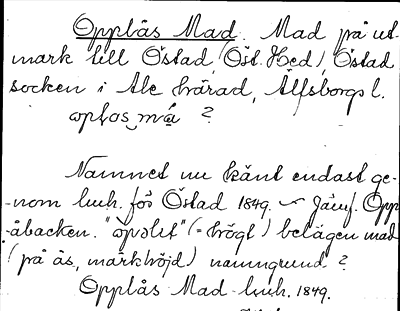 Opplås Mad. Mad på ut-
mark till Östad (Öst. Hed), Östad
socken i Ale härad, Älfsborgs l.
opløs må ?
Namnet nu känt endast ge-
-nom luh. för Östad 1849. Jämf. Opp
-åbacken. (= högt) belägen mad
(på ås, markhöjd) namngrund ?
Opplås Mad luh. 1849.